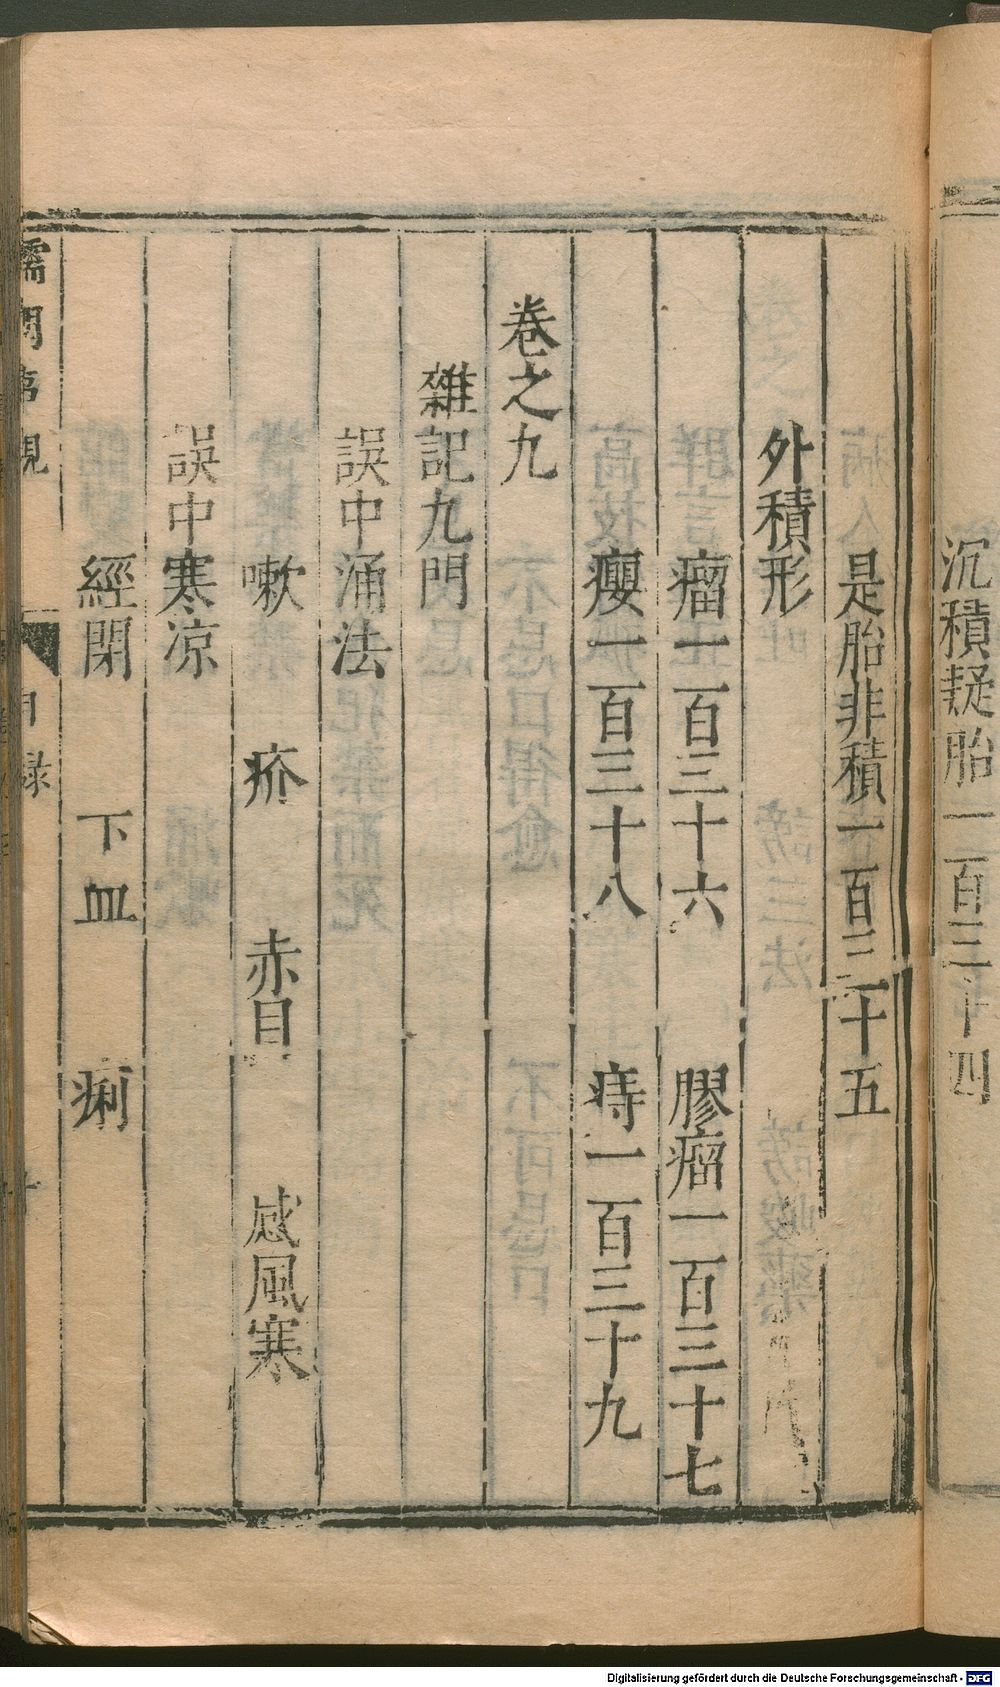 沉積疑胎一百三十四
是胎非積一百三十五
外積形
瘤一百三十六 膠瘤一百三十七
癭一百三十八 痔一百三十九
卷之九
雜記九門
誤中涌法
嗽 疥 赤目 感風寒
誤中寒凉
經閉 下血 痢
儒門事親 目錄
Digitalisierung gefördert durch die Deutsche Forschungsgemeinschaft - DFG